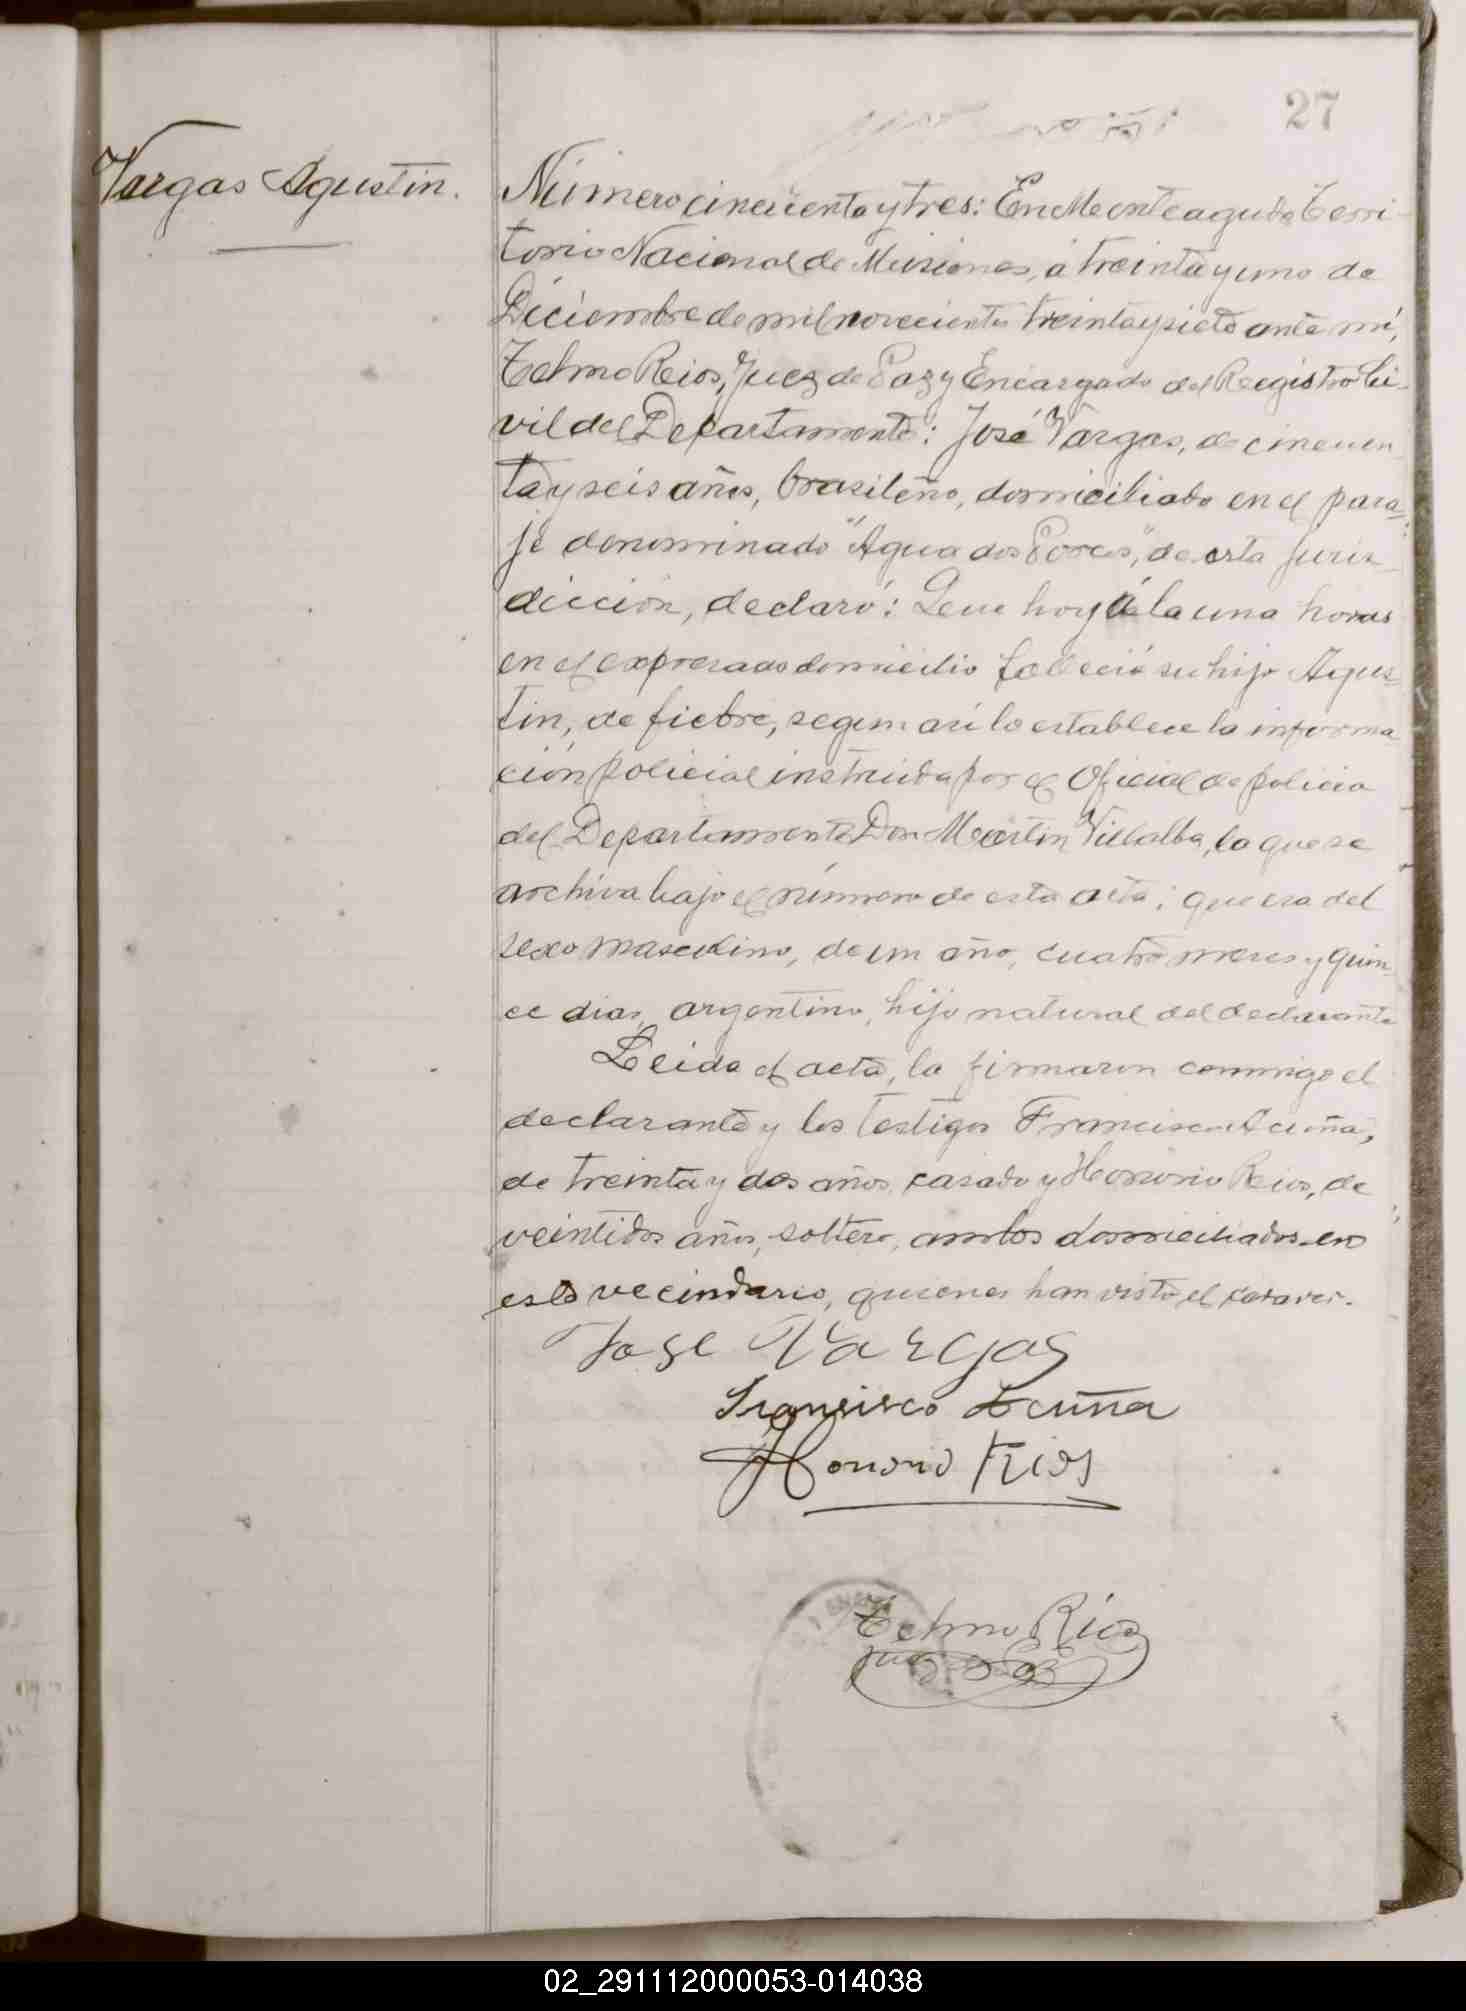 27
Vargas Agustin.
Número cincuenta y tres: En Monteagudo Terri-
torio Nacional de Misiones, á treinta y uno de
Diciembre de mil novecientos treinta y siete ante mí,
Telmo Rios, Juez de Paz y Encargado del Registro Ci-
vil del Departamento: José Vargas, de cincuen-
ta y seis años, brasileño, domiciliado en el para-
je denominado "Agua dos Porcos", de esta juris-
dicción, declaró: Que hoy á la una horas
en el expresado domicilio falleció su hijo Agus-
tin, de fiebre, segun asi lo establece la informa
ción policial instruida por el Oficial de policia
del Departamento Don Martin Villalba, la que se
archiva bajo el número de esta acta; que era del
sexo masculino, de un año, cuatro meses y quin-
ce dias, argentino, hijo natural del declarante
Leida el acta, la firmaron conmigo el
declarante y los testigos Francisco Acuña,
de treinta y dos años, casado y Honorio Rios, de
veintidos años, soltero, ambos domiciliados en
este vecindario, quienes han visto el cadaver.
Jose Vargas
Francisco Acuña
Honorio Rios
Telmo Rios
Juez de Paz
02_291112000053-014038